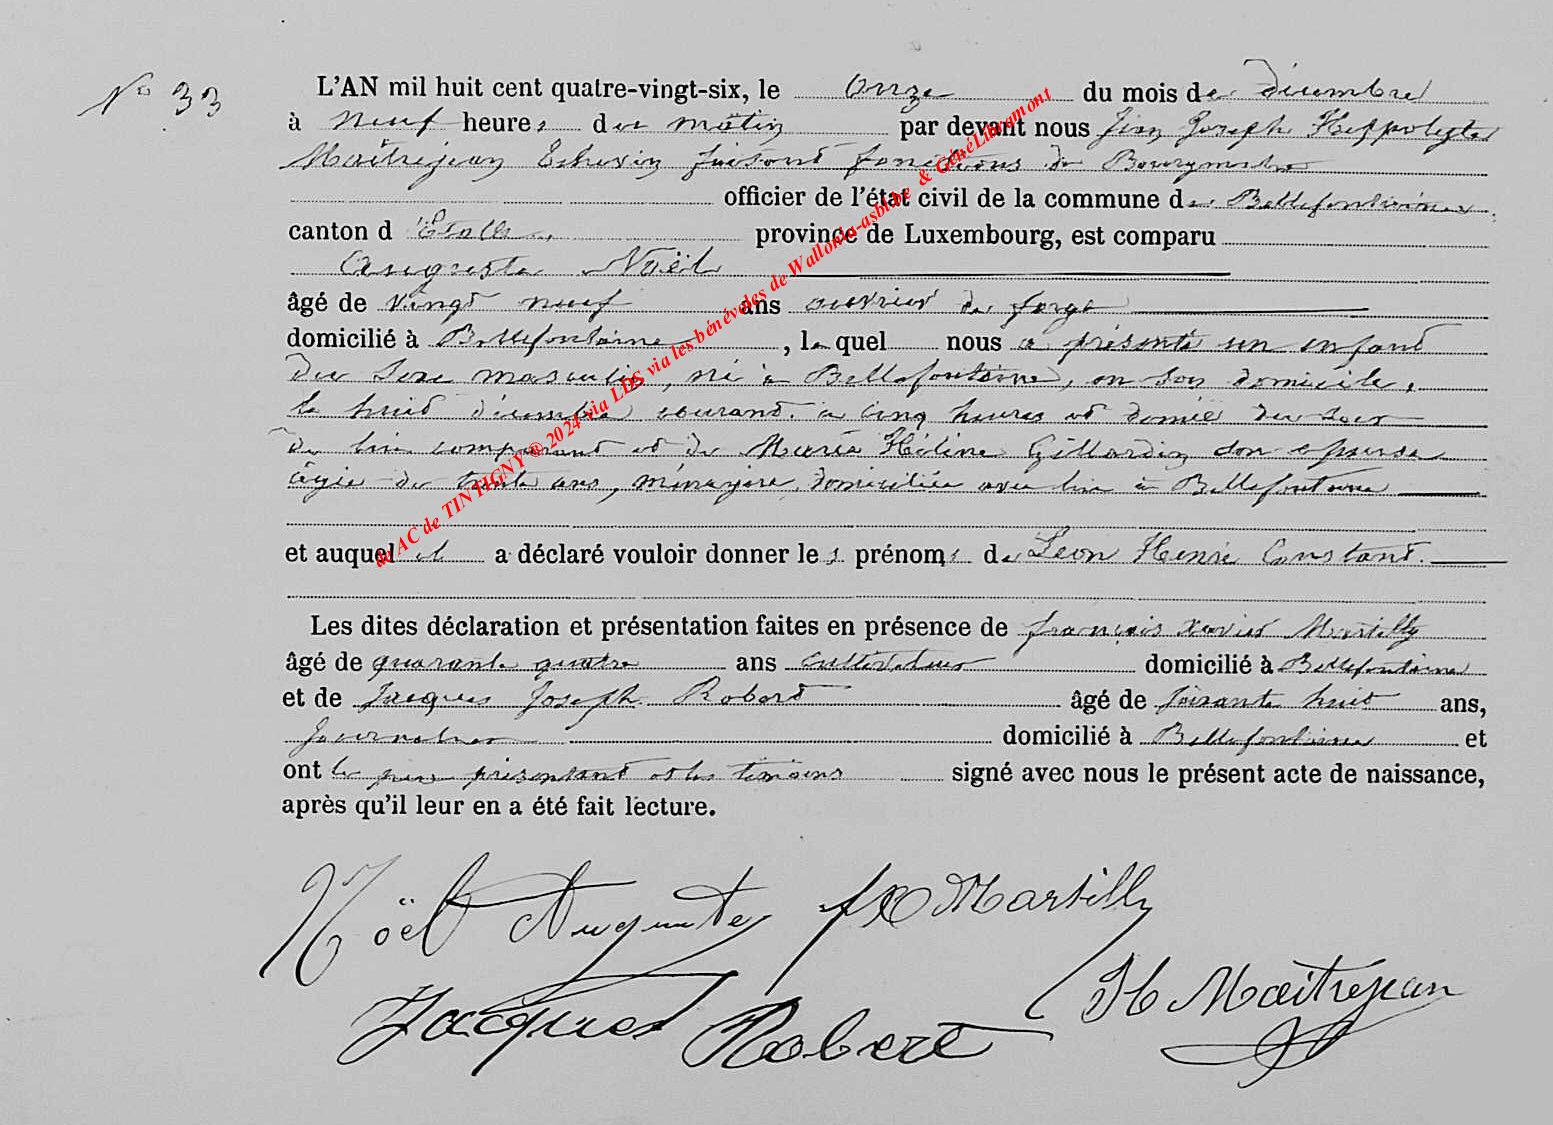 N° 33
L'AN mil huit cent quatre-vingt-six, le onze du mois de décembre
à neuf heures du matin par devant nous Jean Joseph Hippolyte
Maîtrejean Echevin faisant fonctions de Bourgmestre
officier de l'état civil de la commune de Bellefontaine
canton d'Etalle, province de Luxembourg, est comparu
Auguste Noël
âgé de vingt neuf ans ouvrier de forge
domicilié à Bellefontaine, lequel nous a présenté un enfant
du sexe masculin, né à Bellefontaine, en son domicile,
le huit décembre courant à cinq heures et demie du soir
de lui comparant et de Marie Héline Gillardin son épouse
âgée de trente ans, ménagère, domiciliée avec lui à Bellefontaine
et auquel il a déclaré vouloir donner les prénoms de Léon Henri Constant.
Les dites déclaration et présentation faites en présence de françois xavier Martilly
âgé de quarante quatre ans cultivateur domicilié à Bellefontaine
et de Jacques Joseph Robert âgé de soixante huit ans,
Journalier domicilié à Bellefontaine et
ont le père présentant et les témoins signé avec nous le présent acte de naissance,
après qu'il leur en a été fait lecture.
Noël Auguste fx Martilly
Jacques Robert H Maîtrejean
de AC de TINTIGNY © 2024 via LDS via les bénévoles de Wallonia-asbl.be & GénéLibramont